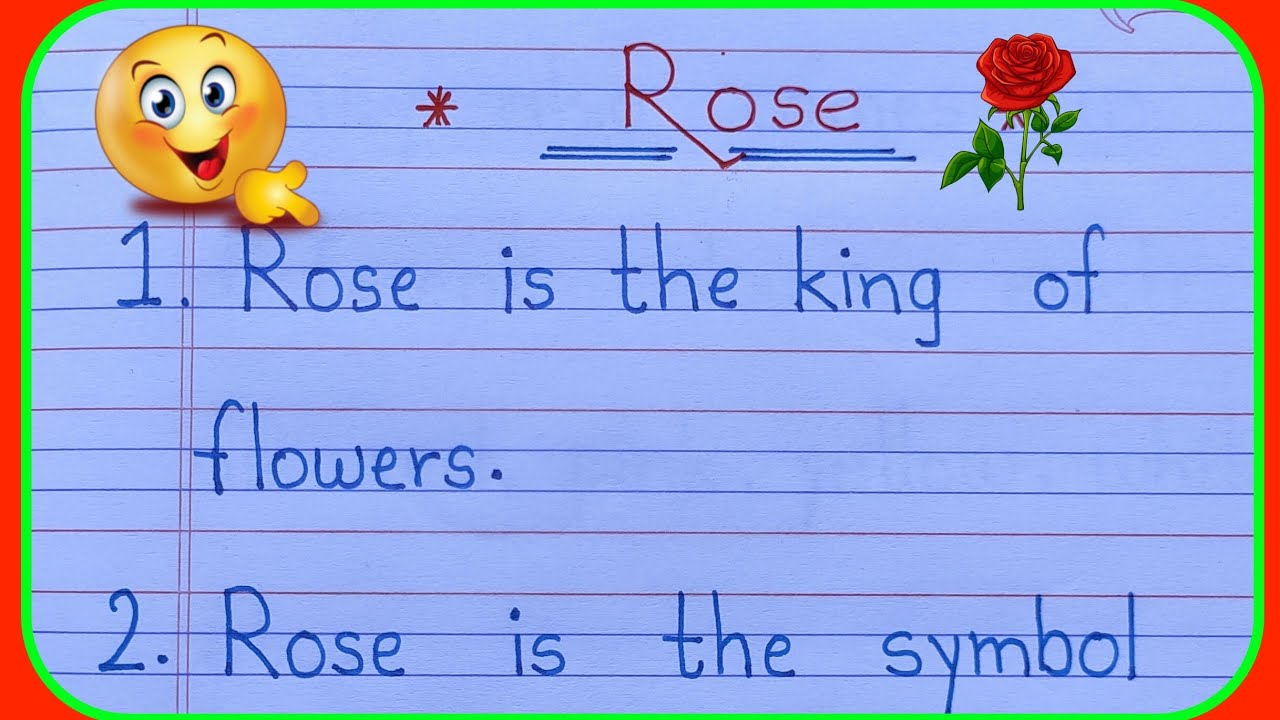 * Rose *
1. Rose is the king of
flowers.
2. Rose is the symbol